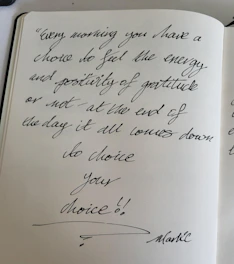 "Every morning you have a
choice to feel the energy
and positivity of gratitude
or not - at the end of
the day it all comes down
to choice
your
choice!!